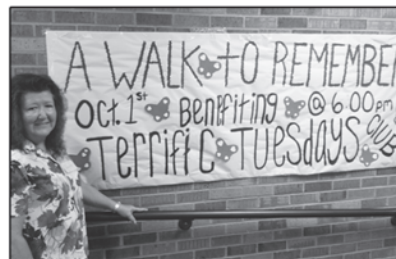 A WALK TO REMEMBER
Oct. 1st Benefiting @ 6:00 pm
Terrific Tuesdays CLUB